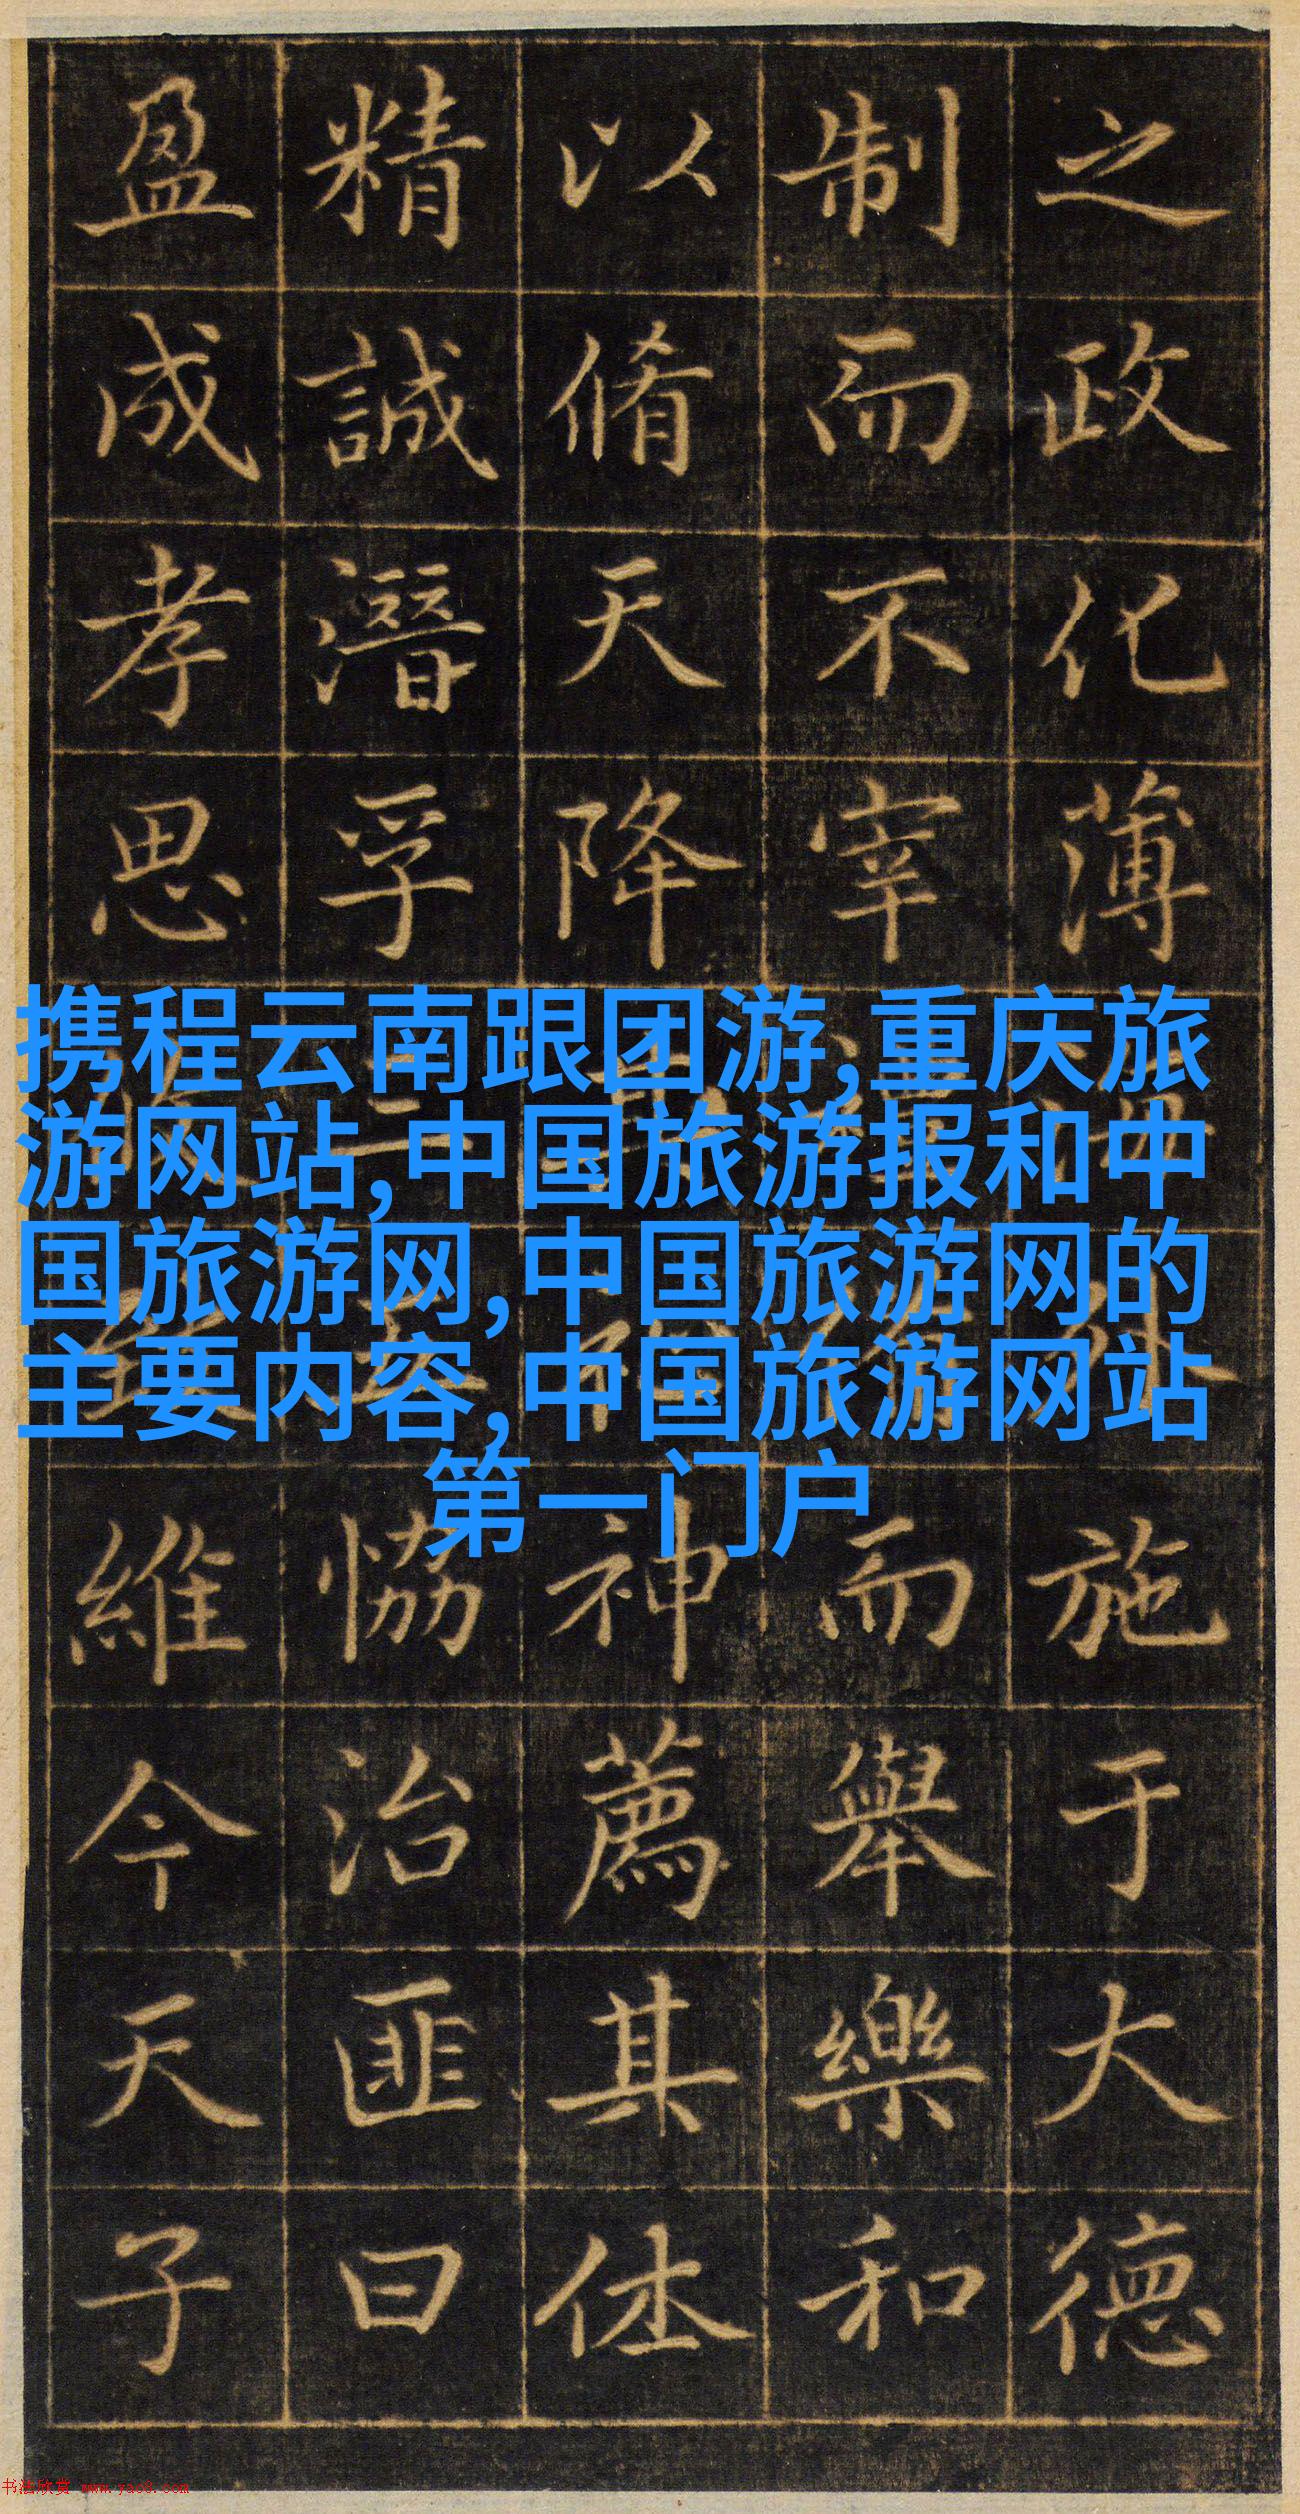 之政化薄
施于大德
制而不宰
而舉樂和
以脩天降
神薦其休
精誠潛孚
恊治匪曰
盈成孝思
維今天子
携程云南跟团游,重庆旅
游网站,中国旅游报和中
国旅游网,中国旅游网的
主要内容,中国旅游网站
第一门户
书法欣赏 www.yac8.com